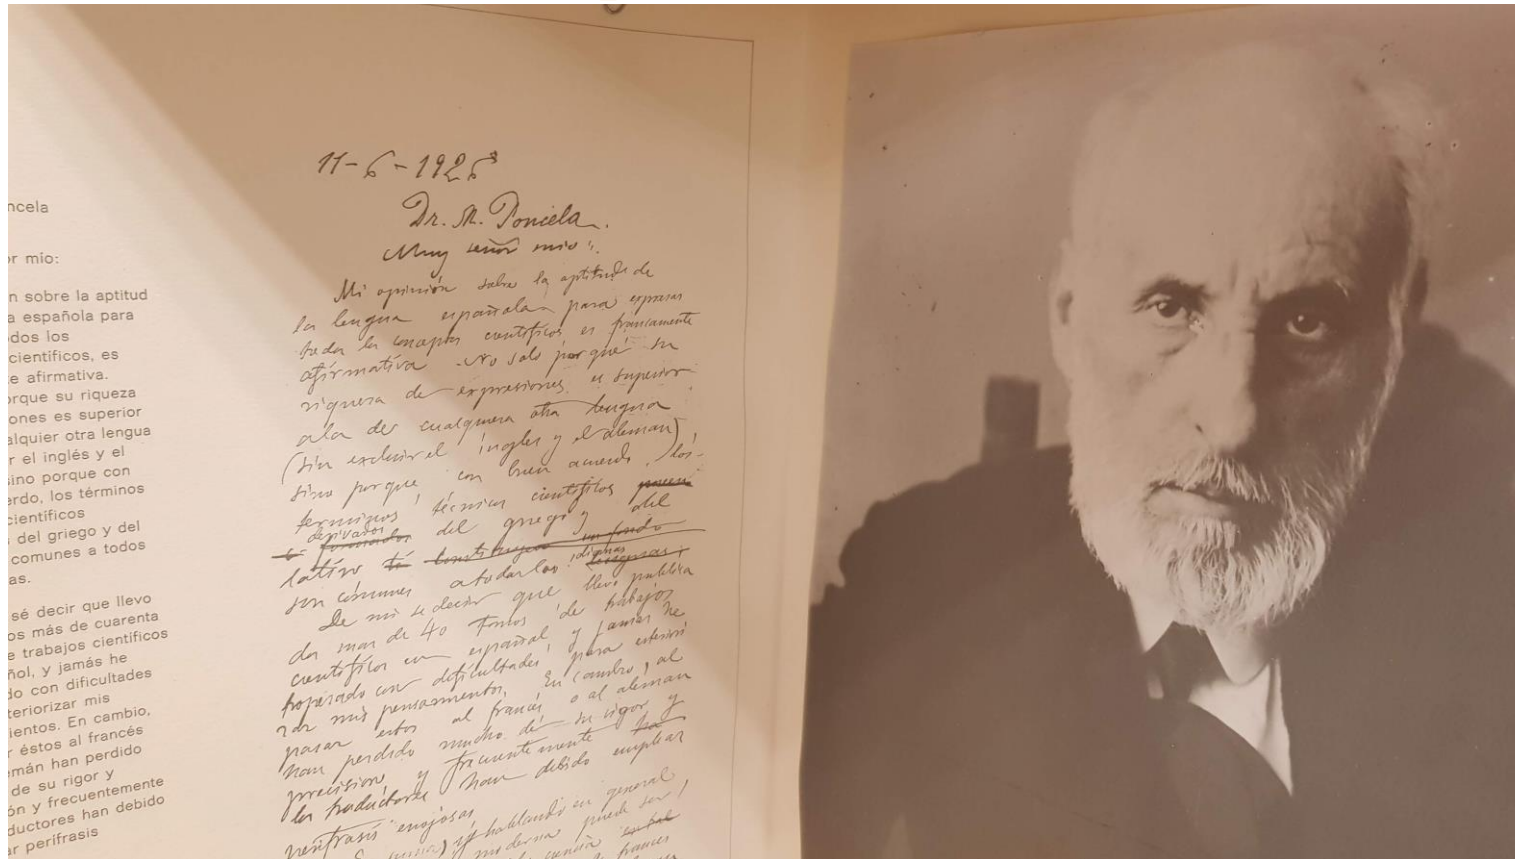 ncela
or mío:
n sobre la aptitud
a española para
odos los
científicos, es
e afirmativa.
orque su riqueza
ones es superior
alquier otra lengua
r el inglés y el
sino porque con
erdo, los términos
científicos
del griego y del
comunes a todos
as.
sé decir que llevo
os más de cuarenta
e trabajos científicos
ñol, y jamás he
do con dificultades
teriorizar mis
ientos. En cambio,
r éstos al francés
emán han perdido
de su rigor y
ón y frecuentemente
ductores han debido
ar perífrasis
11-6-1926
Dr. M. Poncela.
Muy señor mío:
Mi opinión sobre la aptitud de
la lengua española para expresar
todos los conceptos científicos es francamente
afirmativa. No solo porque su
riqueza de expresiones es superior
a la de cualquiera otra lengua
(sin excluir el ingles y el aleman)
sino porque con buen acuerdo, los
terminos técnicos cientifícos
derivados del griego y del
latino
son comunes a todas las
De mi se decir que llevo publica
dos mas de 40 tomos de trabajos
cientifícos en español y jamas he
tropezado con dificultades para exteriori
zar mis pensamientos. En cambio, al
pasar estos al francés o al aleman
han perdido mucho de su rigor y
precision y frecuentemente
los traductores han debido emplear
perifrasis enojosas
hablando en general
moderna puede ser